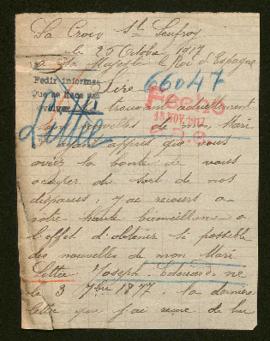 La Croix St Leufroy
le 25 Octobre 1917
a Sa Majesté le Roi d'Espagne
Pedir informes
Que se hace
66047
Fecho
15 NOV. 1917
Sire
me trouvant actuellement
nouvelles de mon Mari
ayant appris que vous
avez la bonté de vous
occuper du sort de nos
disparus, j'ai recours a
votre haute bienveillance a
l'effet d'obtenir si possible
des nouvelles de mon Mari
Lettu Joseph Edouard né
le 3 7bre 1877 la dernière
lettre que j'ai reçue de lui